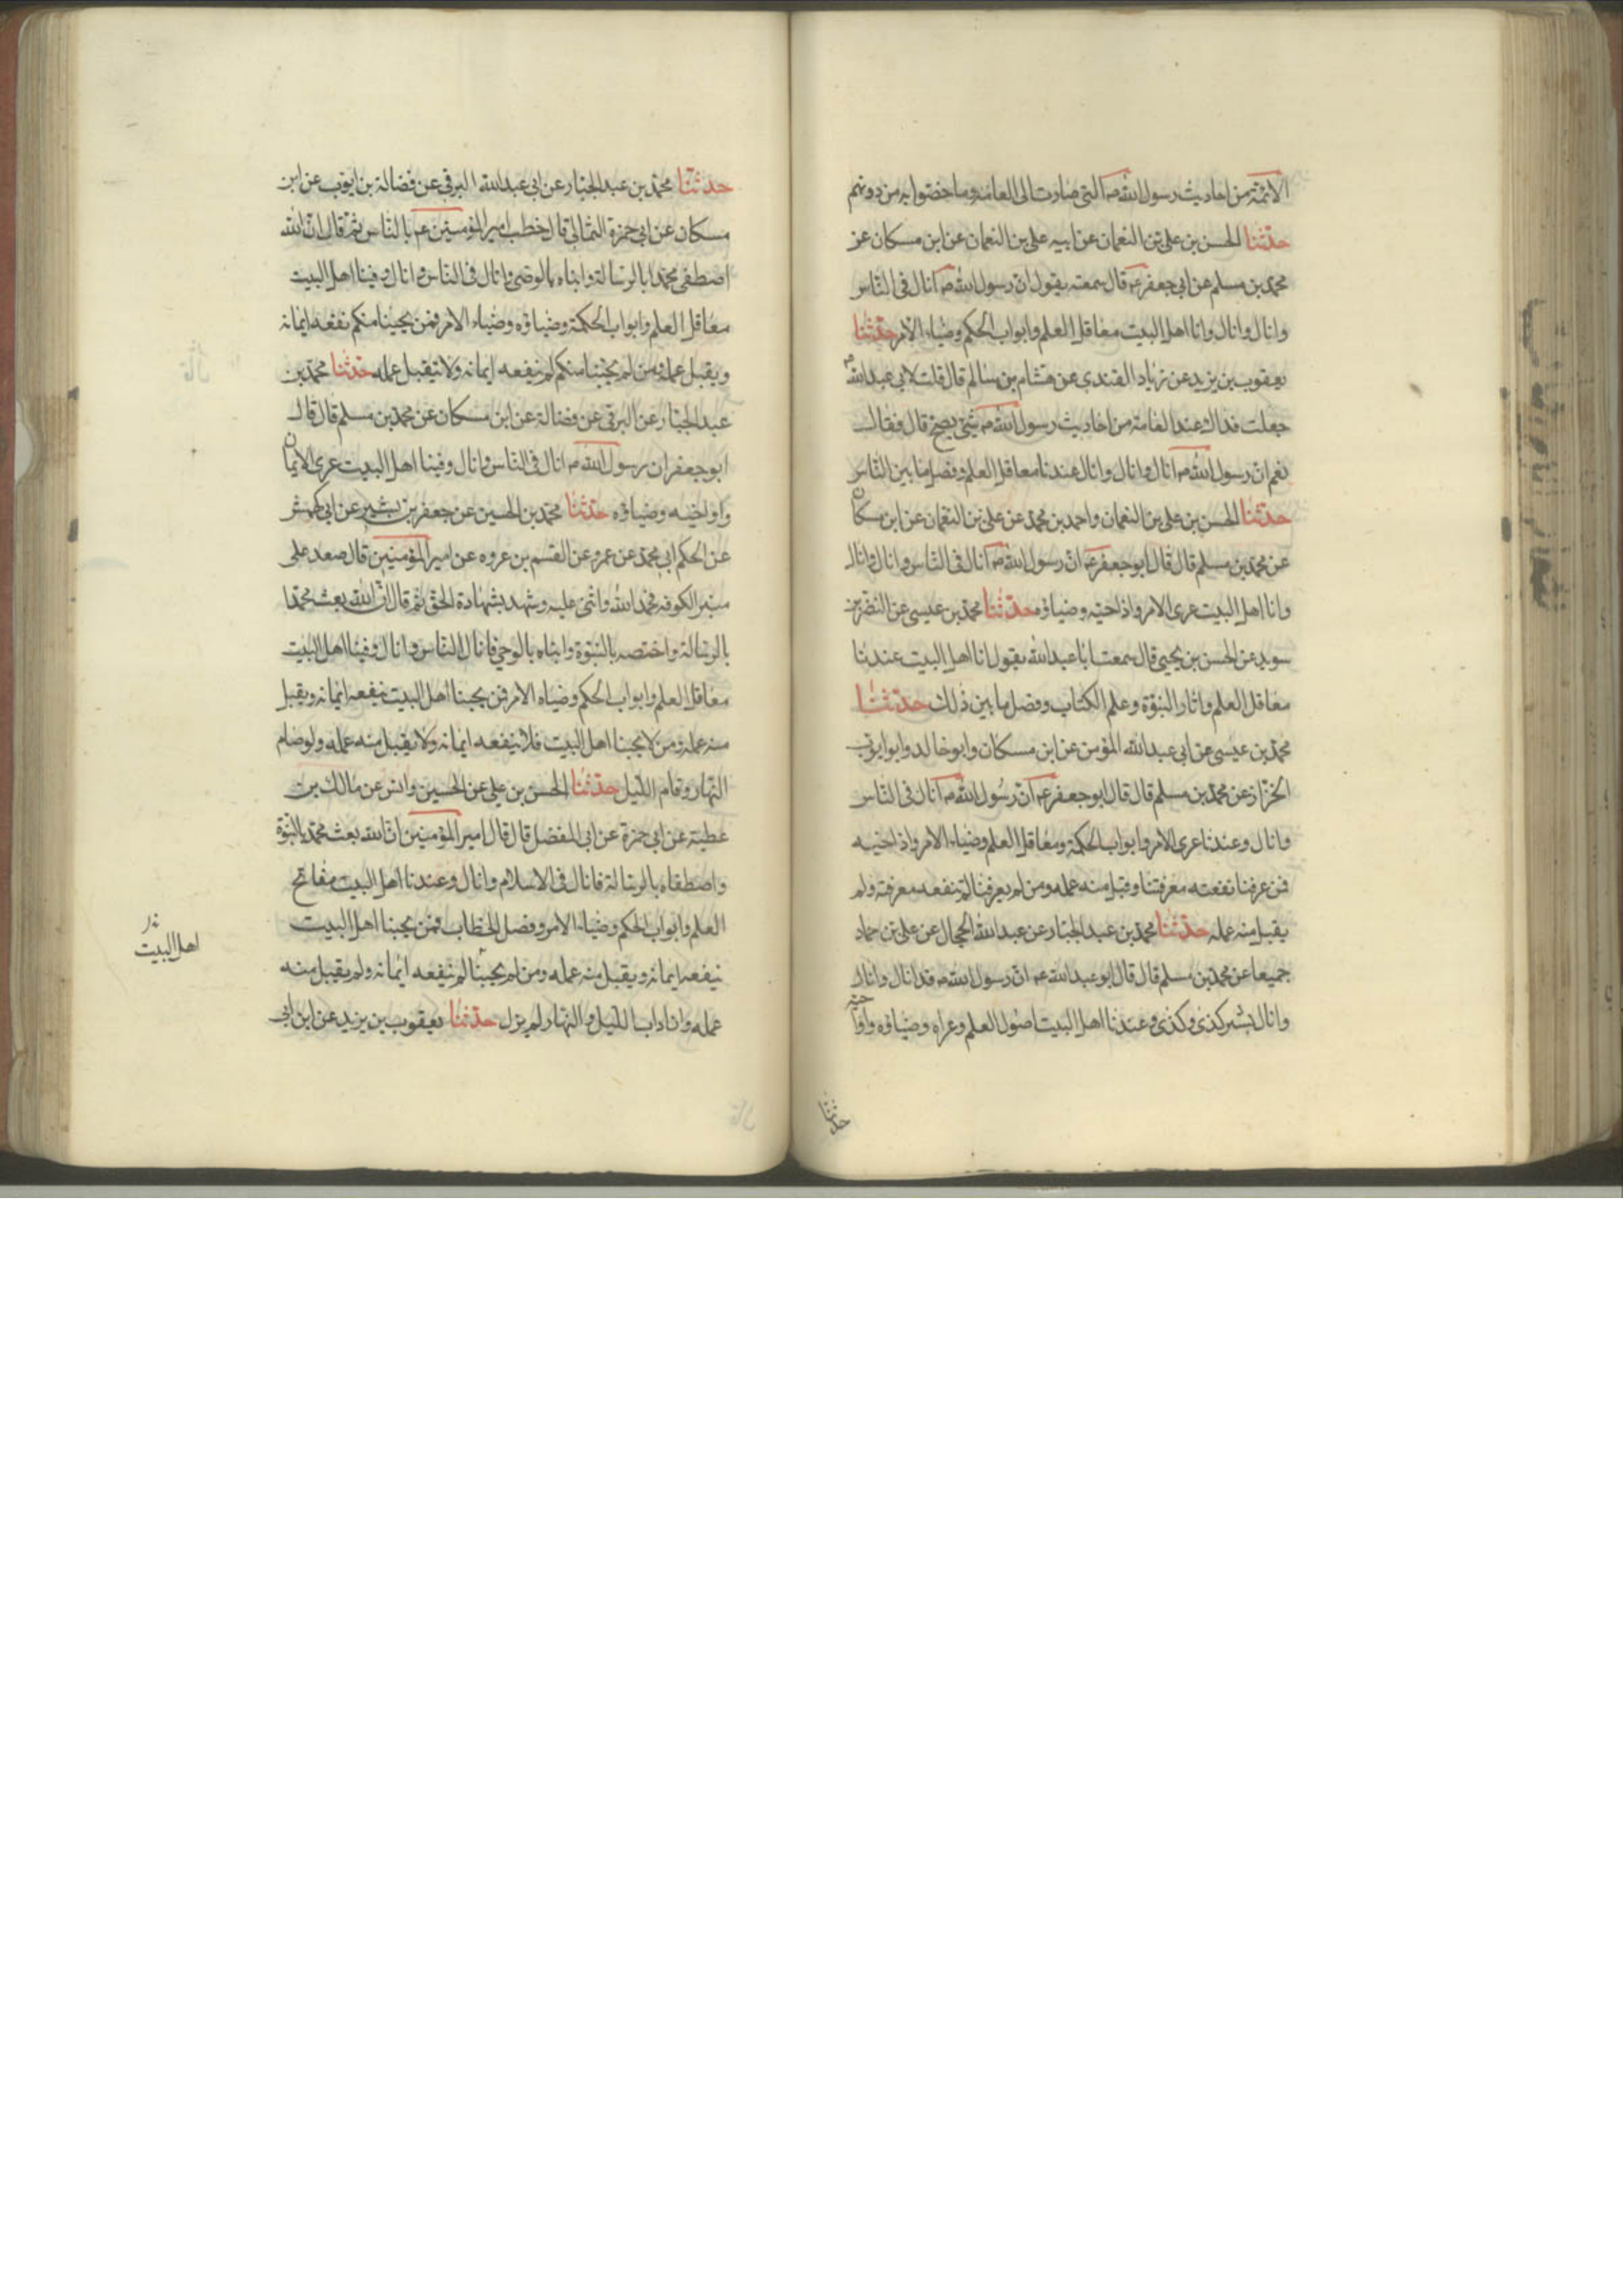 الائمة من احاديث رسول الله ص التى صارت الى العامة وما خصوا به من دونهم
حدثنا الحسن بن على بن النعمان عن ابيه على بن النعمان عن ابن مسكان عن
محمد بن مسلم عن ابي جعفر ع قال سمعته يقول ان رسول الله ص انال فى الناس
وانال وانال وانا اهل البيت معاقل العلم وابواب الحكم وضياء الامر حدثنا
يعقوب بن يزيد عن زياد القندى عن هشام بن سالم قال قلت لابى عبدالله ع
جعلت فداك عند العامة من احاديث رسول الله ص شئ يصح قال فقال
نعم ان رسول الله ص انال وانال وانال عندنا معاقل العلم وفصل ما بين الناس
حدثنا الحسن بن على بن النعمان واحمد بن محمد عن على بن النعمان عن ابن مسكان
عن محمد بن مسلم قال قال ابو جعفر ع ان رسول الله ص انال فى الناس وانال وانال
وانا اهل البيت عرى الامر واواخيه وضياؤه حدثنا محمد بن عيسى عن النضر بن
سويد عن الحسن بن يحيى قال سمعت ابا عبدالله يقول انا اهل البيت عندنا
معاقل العلم واثار النبوة وعلم الكتاب وفصل ما بين ذلك حدثنا
محمد بن عيسى عن ابى عبدالله المؤمن عن ابن مسكان وابو خالد وابو ايوب
الخزاز عن محمد بن مسلم قال قال ابو جعفر ع ان رسول الله ص انال فى الناس
وانال وعندنا عرى الامر وابواب الحكمة ومعاقل العلم وضياء الامر واواخيه
فمن عرفنا نفعته معرفتنا وقبل منه عمله ومن لم يعرفنا لم تنفعه معرفته ولم
يقبل منه عمله حدثنا محمد بن عبد الجبار عن عبدالله الحجال عن على بن حماد
جميعا عن محمد بن مسلم قال قال ابو عبدالله ع ان رسول الله ص قد انال وانال
وانال يشير كذى وكذى وعندنا اهل البيت اصول العلم وعراه وضياؤه واواخيه
حدثنا
حدثنا محمد بن عبد الجبار عن ابى عبدالله البرقى عن فضالة بن ايوب عن ابن
مسكان عن ابى حمزة الثمالى قال خطب امير المؤمنين ع بالناس ثم قال ان الله
اصطفى محمدا بالرسالة وانباه بالوحى وانال فى الناس وانال وفينا اهل البيت
معاقل العلم وابواب الحكمة وضياؤه وضياء الامر فمن يحبنا منكم نفعه ايمانه
ويقبل عمله ومن لم يحبنا منكم لم ينفعه ايمانه ولا يتقبل عمله حدثنا محمد بن
عبد الجبار عن البرقى عن فضالة عن ابن مسكان عن محمد بن مسلم قال قال
ابو جعفر ان رسول الله ص انال فى الناس وانال وفينا اهل البيت عرى الايمان
واواخيه وضياؤه حدثنا محمد بن الحسين عن جعفر بن بشير عن ابى كهمش
عن الحكم ابى محمد عن عمرو عن القسم بن عروه عن امير المؤمنين قال صعد على
منبر الكوفه فحمد الله واثنى عليه وشهد بشهادة الحق ثم قال ان الله بعث محمدا
بالرسالة واختصه بالنبوة وانباه بالوحى فانال الناس وانال وفينا اهل البيت
معاقل العلم وابواب الحكم وضياء الامر فمن يحبنا اهل البيت ينفعه ايمانه ويقبل
منه عمله ومن لا يحبنا اهل البيت فلا ينفعه ايمانه ولا يقبل منه عمله ولو صام
النهار وقام الليل حدثنا الحسن بن على عن الحسين وانس عن مالك بن
عطية عن ابى حمزة عن ابى المفضل قال قال امير المؤمنين ان الله بعث محمد بالنبوة
واصطفاه بالرسالة فانال فى الاسلام وانال وعندنا اهل البيت مفاتح
العلم وابواب الحكم وضياء الامر وفصل الخطاب فمن يحبنا اهل البيت
ينفعه ايمانه ويقبل منه عمله ومن لم يحبنا لم ينفعه ايمانه ولم يقبل منه
عمله وان اداب الليل والنهار لم يزل حدثنا يعقوب بن يزيد عن ابن ابى
اهل البيت